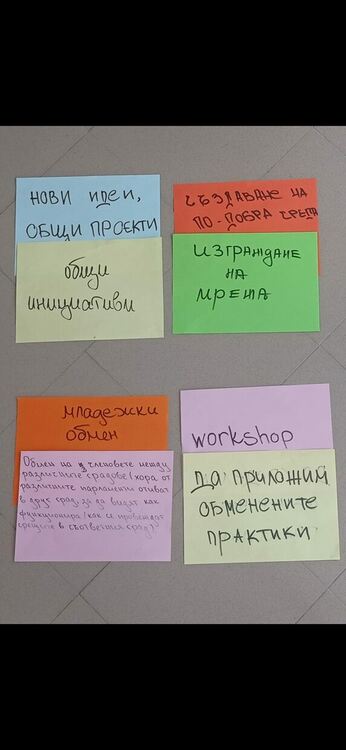 НОВИ ИДЕИ,
ОБЩИ ПРОЕКТИ
общи
инициативи
СЪЗДАВАНЕ НА
ПО-ДОБРА СРЕДА
ИЗГРАЖДАНЕ
НА
МРЕЖА
МЛАДЕЖКИ
ОБМЕН
Обмен на членовете между
различните градове (хора от
различните парламенти отиват
в друг град, за да видят как
функционира / как се провеждат
срещите в съответния град)
workshop
ДА ПРИЛОЖИМ
ОБМЕНЕНИТЕ
ПРАКТИКИ